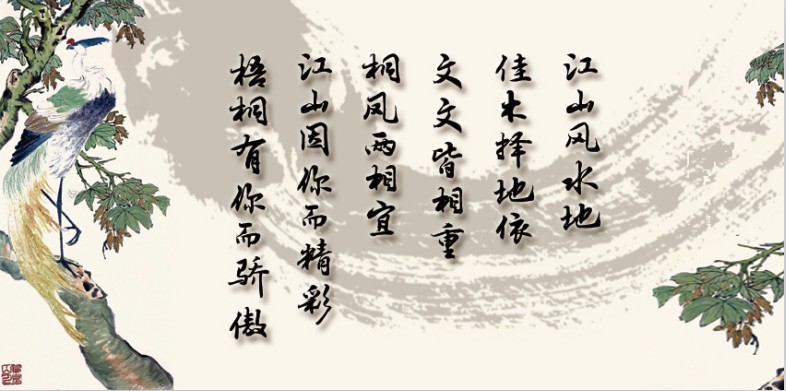 江山风水地
佳木择地依
文文皆相重
桐凤两相宜
江山因你而精彩
梧桐有你而骄傲